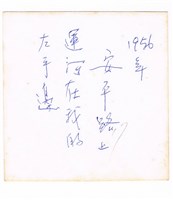 1956年
安平路上
運河在我的
左手邊